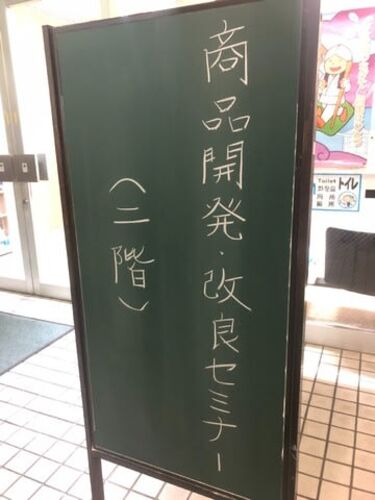 商品開発・改良セミナー
（二階）
Toilet トイレ
화장실